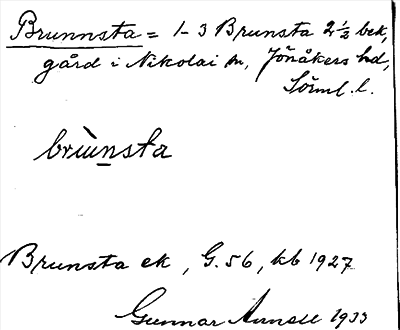 Brunnsta = 1-3 Brunsta 2 ½ bek,
gård i Nikolai sn, Jönåkers hd,
Sörml. l.
brùnsta
Brunsta ek, G. 56, kb 1927
Gunnar Arnell 1933